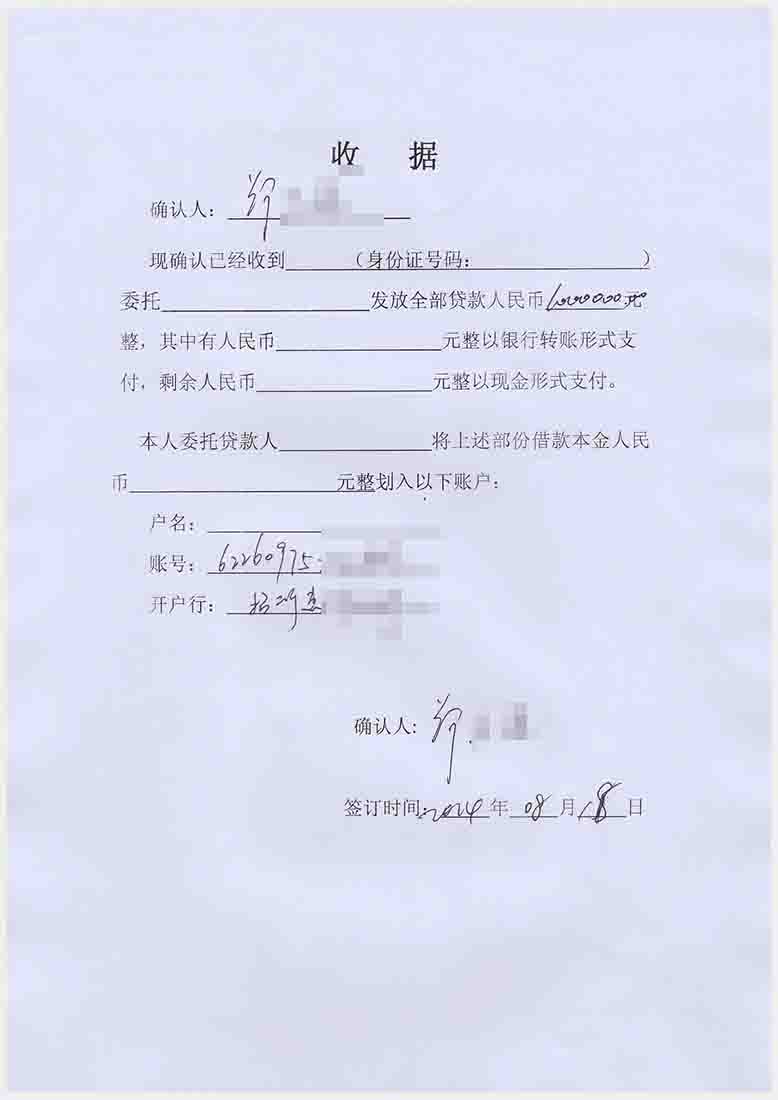 收 据
确认人：郑
现确认已经收到______（身份证号码：______________）
委托__________________发放全部贷款人民币1000000元
整，其中有人民币________________元整以银行转账形式支
付，剩余人民币________________元整以现金形式支付。
本人委托贷款人______________将上述部份借款本金人民
币____________________元整划入以下账户：
户名：__________
账号：62260975
开户行：招
确认人：郑
签订时间：2024年08月18日